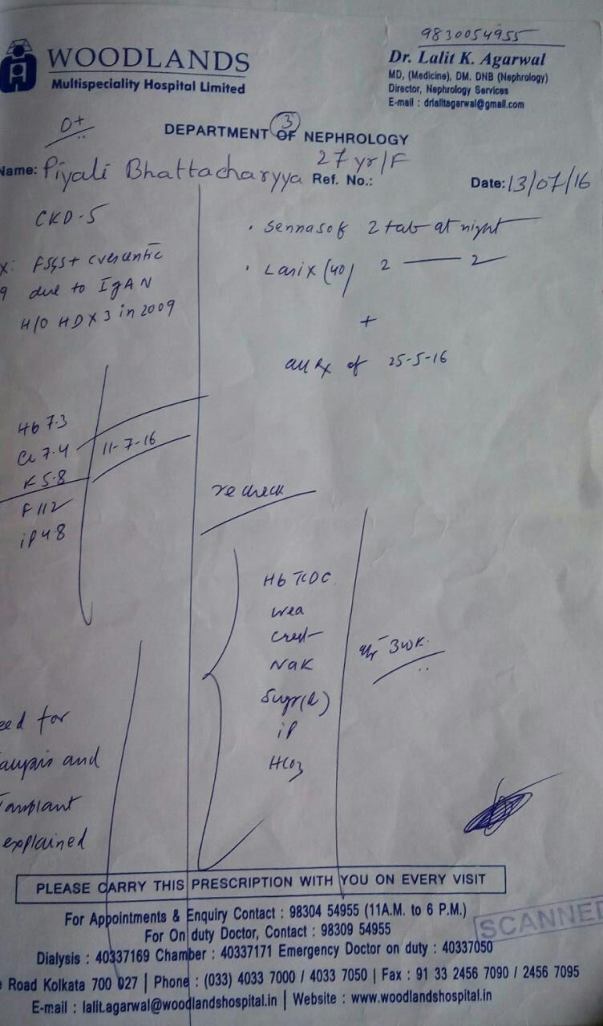 9830054955
WOODLANDS
Multispeciality Hospital Limited
Dr. Lalit K. Agarwal
MD, (Medicine), DM, DNB (Nephrology)
Director, Nephrology Services
E-mail : drlalitagarwal@gmail.com
O+
3
DEPARTMENT OF NEPHROLOGY
27 yr/F
Name: Piyali Bhattacharyya Ref. No.: Date: 13/07/16
CKD-5
FSGS +
due to IgAN
H/O HD x 3 in 2009
2 tab at night
(40) 2 — 2
+
all Rx of 25-5-16
Hb 7.3
Cr 7.4
K 5.8
11-7-16
F 112
iP 4.8
recheck
Hb TCDC
urea
Creat
NaK
Sugr(R)
iP
HCO3
3 wk.
eed for
and
explained
PLEASE CARRY THIS PRESCRIPTION WITH YOU ON EVERY VISIT
For Appointments & Enquiry Contact : 98304 54955 (11A.M. to 6 P.M.)
For On duty Doctor, Contact : 98309 54955
SCANNED
Dialysis : 40337169 Chamber : 40337171 Emergency Doctor on duty : 40337050
Road Kolkata 700 027 | Phone : (033) 4033 7000 / 4033 7050 | Fax : 91 33 2456 7090 / 2456 7095
E-mail : lalit.agarwal@woodlandshospital.in | Website : www.woodlandshospital.in